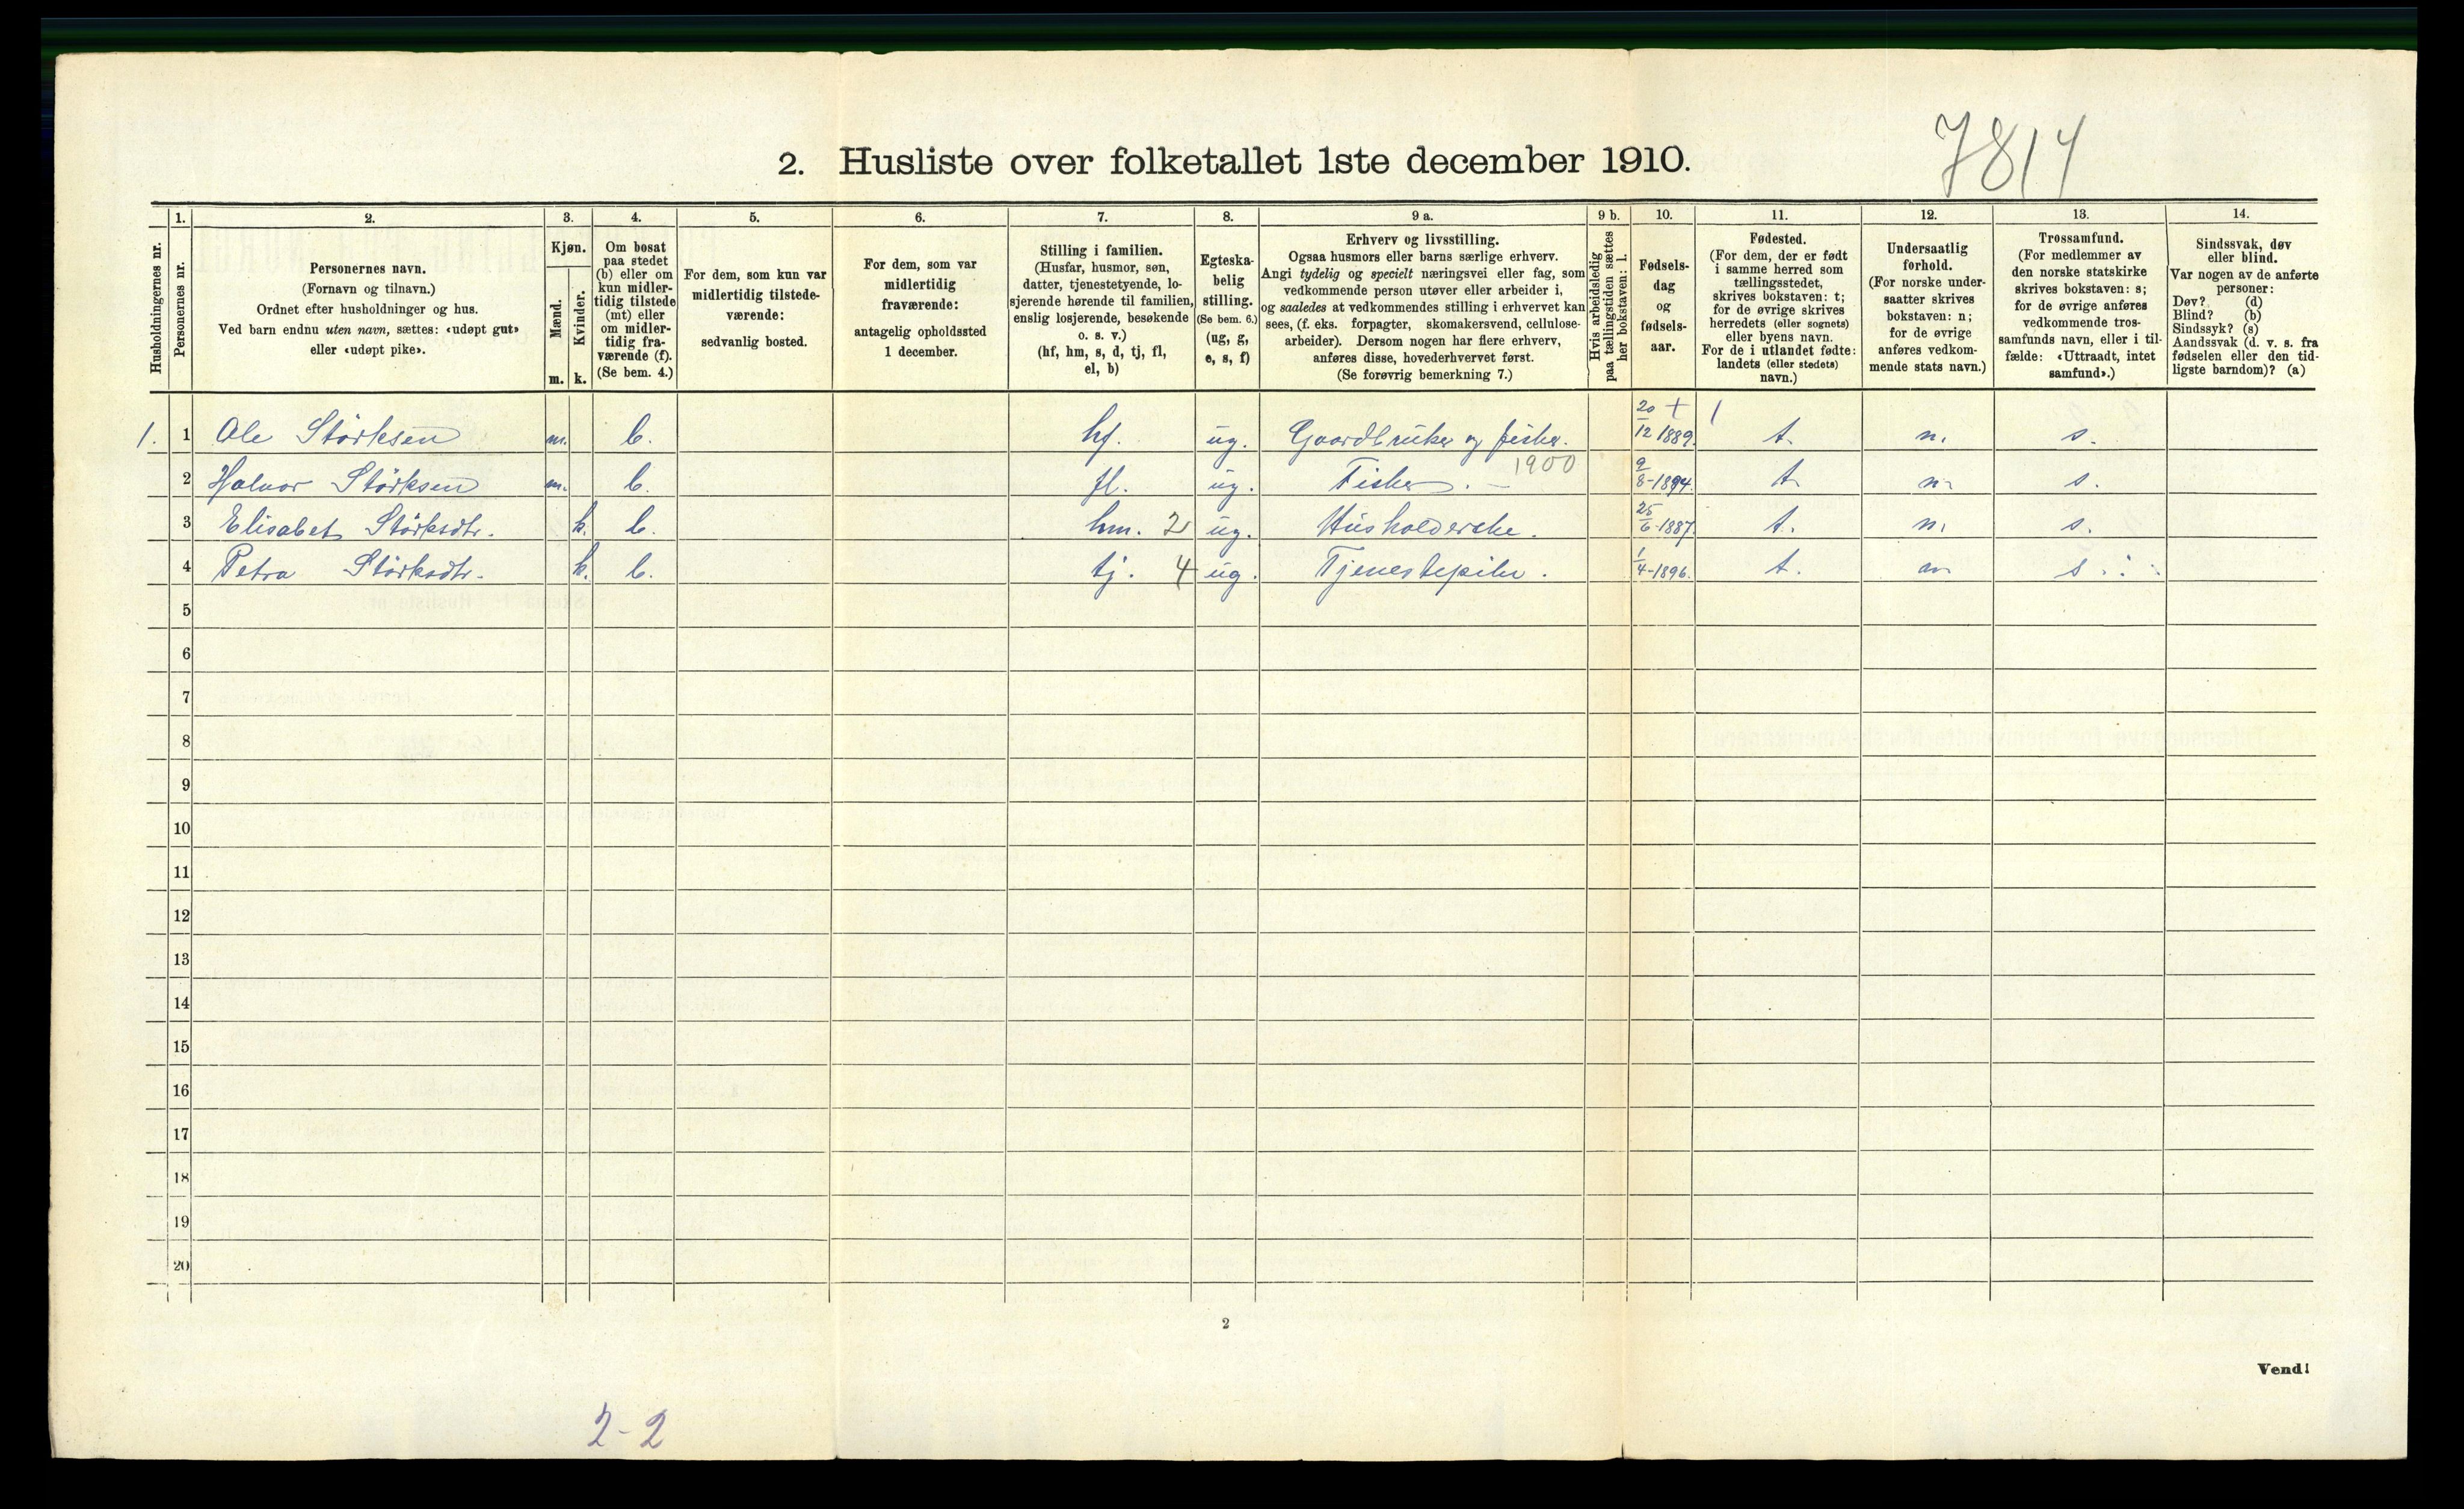 7814
2. Husliste over folketallet 1ste december 1910.
Husholdningernes nr.
1.
Personernes nr.
2.
Personernes navn.
(Fornavn og tilnavn.)
Ordnet efter husholdninger og hus.
Ved barn endnu uten navn, sættes: «udøpt gut»
eller «udøpt pike».
3.
Kjøn.
Mænd.
Kvinder.
m.
k.
4.
Om bosat
paa stedet
(b) eller om
kun midler-
tidig tilstede
(mt) eller
om midler-
tidig fra-
værende (f).
(Se bem. 4.)
5.
For dem, som kun var
midlertidig tilstede-
værende:
sedvanlig bosted.
6.
For dem, som var
midlertidig
fraværende:
antagelig opholdssted
1 december.
7.
Stilling i familien.
(Husfar, husmor, søn,
datter, tjenestetyende, lo-
sjerende hørende til familien,
enslig losjerende, besøkende
o. s. v.)
(hf, hm, s, d, tj, fl,
el, b)
8.
Egteska-
belig
stilling.
(Se bem. 6.)
(ug, g,
e, s, f)
9 a.
Erhverv og livsstilling.
Ogsaa husmors eller barns særlige erhverv.
Angi tydelig og specielt næringsvei eller fag, som
vedkommende person utøver eller arbeider i,
og saaledes at vedkommendes stilling i erhvervet kan
sees, (f. eks. forpagter, skomakersvend, cellulose-
arbeider). Dersom nogen har flere erhverv,
anføres disse, hovederhvervet først.
(Se forøvrig bemerkning 7.)
9 b.
Hvis arbeidsledig
paa tællingstiden sættes
her bokstaven: l.
10.
Fødsels-
dag
og
fødsels-
aar.
11.
Fødested.
(For dem, der er født
i samme herred som
tællingsstedet,
skrives bokstaven: t;
for de øvrige skrives
herredets (eller sognets)
eller byens navn.
For de i utlandet fødte:
landets (eller stedets)
navn.)
12.
Undersaatlig
forhold.
(For norske under-
saatter skrives
bokstaven: n;
for de øvrige
anføres vedkom-
mende stats navn.)
13.
Trossamfund.
(For medlemmer av
den norske statskirke
skrives bokstaven: s;
for de øvrige anføres
vedkommende tros-
samfunds navn, eller i til-
fælde: «Uttraadt, intet
samfund».)
14.
Sindssvak, døv
eller blind.
Var nogen av de anførte
personer:
Døv? (d)
Blind? (b)
Sindssyk? (s)
Aandssvak (d. v. s. fra
fødselen eller den tid-
ligste barndom)? (a)
1. 1 Ole Störksen m. b. hf. ug. Gaardbruker og fisker. 20/12 1889. t. n. s.
1900
2 Halvor Störksen m. b. fl. ug. Fisker. 9/8-1894. t. n. s.
3 Elisabet Störksdtr. k. b. hm. 2 ug. Husholderske. 25/6-1887. t. n. s.
4 Petra Störksdtr. k. b. tj. 4 ug. Tjenestepike. 1/4-1896. t. n s.
5
6
7
8
9
10
11
12
13
14
15
16
17
18
19
20
2
Vend!
2-2